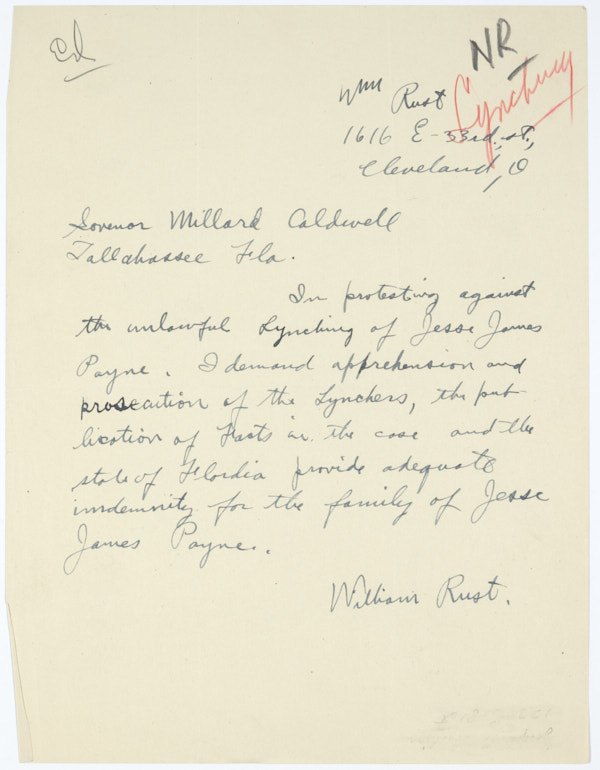 Ed
NR
Lynching
Wm Rust
1616 E-33rd, st.,
Cleveland, O
Govenor Millard Caldwell
Tallahassee Fla.
In protesting against
the unlawful Lynching of Jesse James
Payne. I demand apprehension and
prosecution of the Lynchers, the pub
lication of Facts in the case and the
state of Flordia provide adequate
imdemnity for the family of Jesse
James Payne.
William Rust.